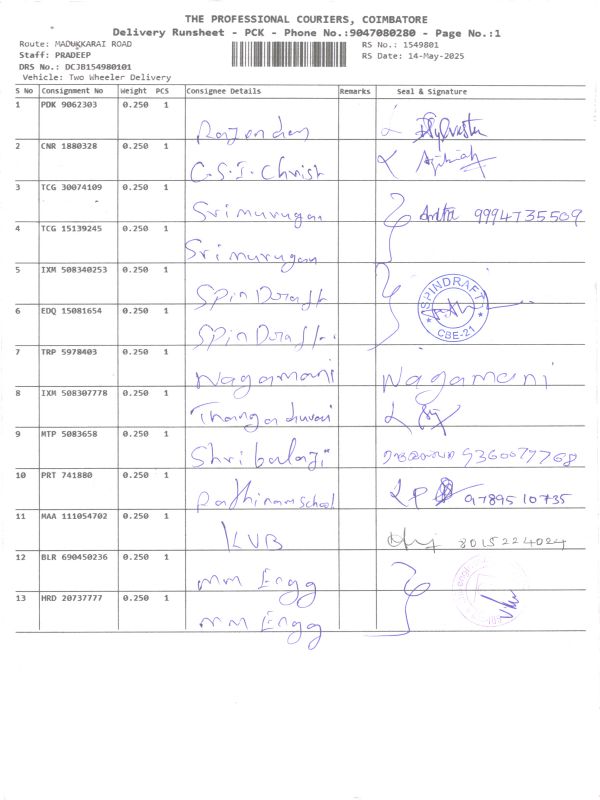 THE PROFESSIONAL COURIERS, COIMBATORE
Delivery Runsheet - PCK - Phone No.:9047080280 - Page No.:1
Route: MADUKKARAI ROAD
RS No.: 1549801
Staff: PRADEEP
RS Date: 14-May-2025
DRS No.: DCJB154980101
Vehicle: Two Wheeler Delivery
S No Consignment No Weight PCS Consignee Details Remarks Seal & Signature
1 PDK 9062303 0.250 1 Rajendran
2 CNR 1880328 0.250 1 C.S.I. Christ
3 TCG 30074109 0.250 1 Sri murugan 9994735509
4 TCG 15139245 0.250 1 Sri murugan
5 IXM 508340253 0.250 1 SPIN Draft SPINDRAFT CBE-21
6 EDQ 15081654 0.250 1 SPIN Draft
7 TRP 5978403 0.250 1 Nagamani Nagamani
8 IXM 508307778 0.250 1
9 MTP 5083658 0.250 1 Shri balaji 9360077768
10 PRT 741880 0.250 1 school 9789510735
11 MAA 111054702 0.250 1 KVB 8015224024
12 BLR 690450236 0.250 1 MM Engg
13 HRD 20737777 0.250 1 MM Engg